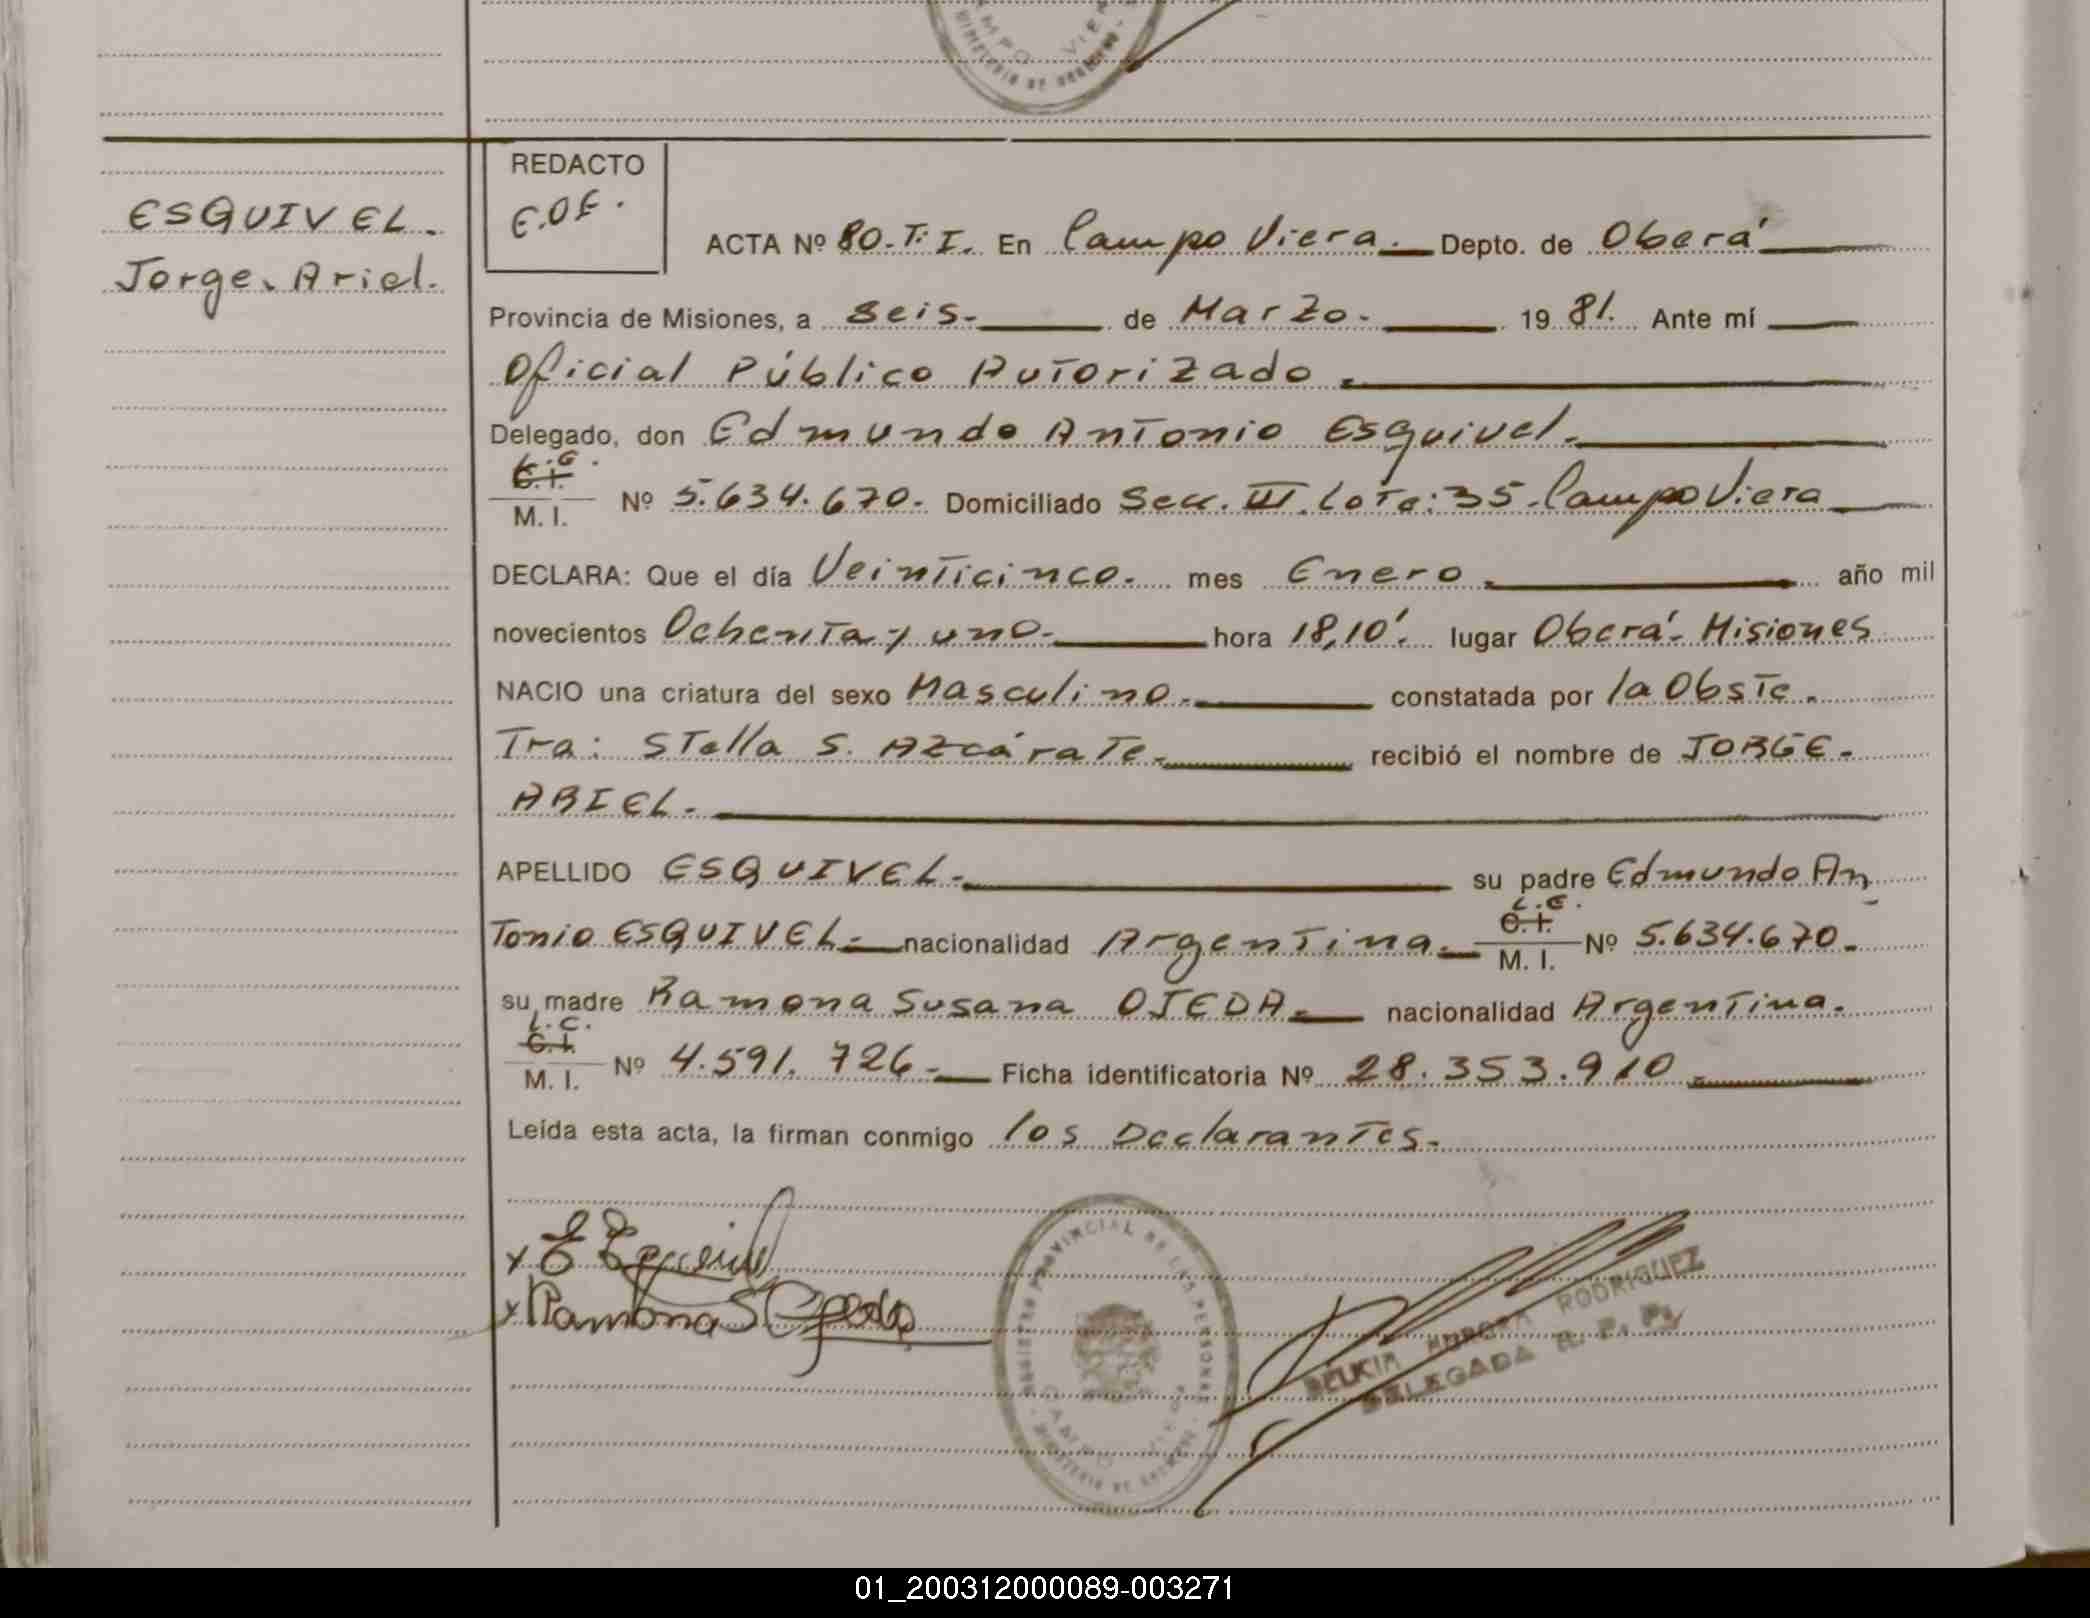 CAMPO VIERA
MINISTERIO DE GOBIERNO
REDACTO
E.O.E.
ESQUIVEL.
Jorge. Ariel.
ACTA Nº 80.T.I. En Campo Viera. Depto. de Oberá
Provincia de Misiones, a seis. de Marzo. 1981. Ante mí
Oficial Público Autorizado.
Delegado, don Edmundo Antonio Esquivel.
L.E.
C.I.
M. I. Nº 5.634.670. Domiciliado Secc. III. Lote: 35. Campo Viera
DECLARA: Que el día Veinticinco. mes Enero. año mil
novecientos Ochenta y uno. hora 18,10'. lugar Oberá - Misiones
NACIO una criatura del sexo Masculino. constatada por la Obste.
Tra: Stella S. Azcárate. recibió el nombre de JORGE.
ARIEL.
APELLIDO ESQUIVEL. su padre Edmundo An
L.E.
C.I.
tonio ESQUIVEL. nacionalidad Argentina. M. I. Nº 5.634.670.
su madre Ramona Susana OJEDA. nacionalidad Argentina.
L.C.
C.I.
M. I. Nº 4.591.726. Ficha identificatoria Nº 28.353.910.
Leída esta acta, la firman conmigo los Declarantes.
x E Esquivel
x Ramona S Ojeda
REGISTRO PROVINCIAL DE LAS PERSONAS
CAMPO VIERA
MINISTERIO DE GOBIERNO
AURORA RODRIGUEZ
DELEGADA R. P. P.
01_200312000089-003271